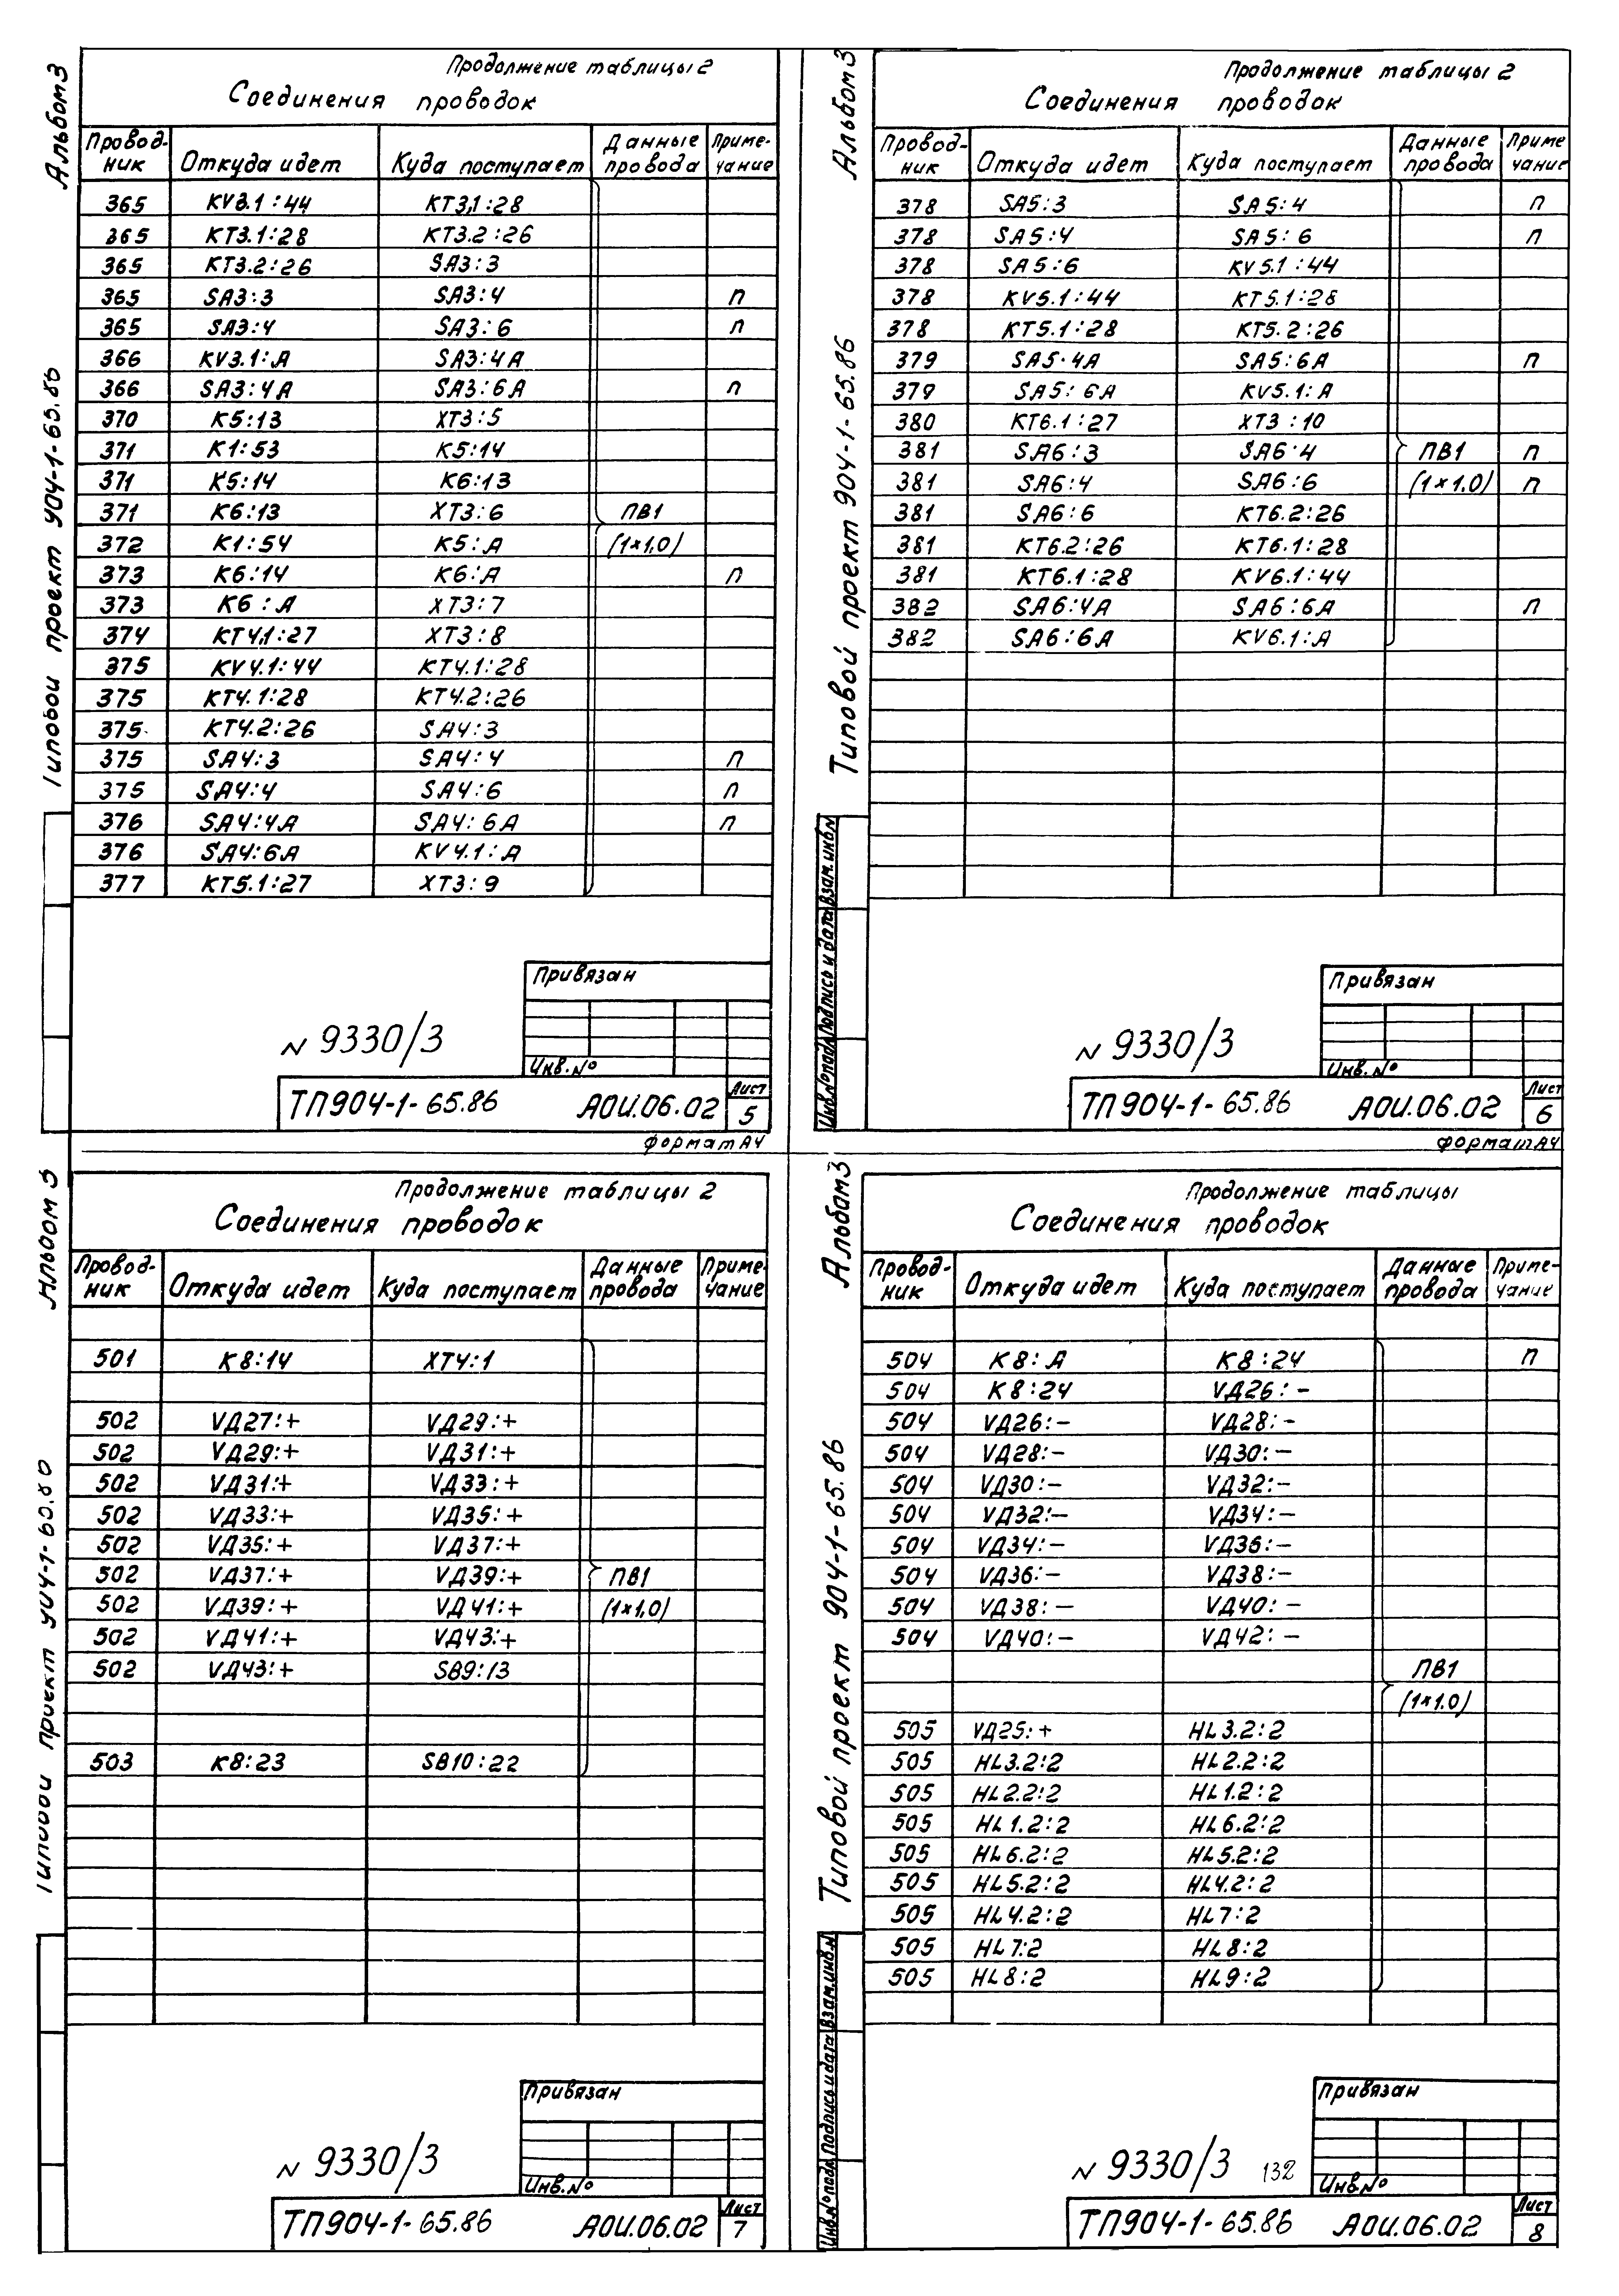 Альбом3
Типовой проект 904-1-65.86
Продолжение таблицы 2
Соединения проводок
Провод- Данные Приме-
ник Откуда идет Куда поступает провода чание
365 KV3.1:44 KT3.1:28
365 KT3.1:28 KT3.2:26
365 KT3.2:26 SA3:3
365 SA3:3 SA3:4 п
365 SA3:4 SA3:6 п
366 KV3.1:A SA3:4A
366 SA3:4A SA3:6A п
370 K5:13 XT3:5
371 K1:53 K5:14
371 K5:14 K6:13
371 K6:13 XT3:6 ПВ1
372 K1:54 K5:A (1×1,0)
373 K6:14 K6:A п
373 K6:A XT3:7
374 KT4.1:27 XT3:8
375 KV4.1:44 KT4.1:28
375 KT4.1:28 KT4.2:26
375 KT4.2:26 SA4:3
375 SA4:3 SA4:4 п
375 SA4:4 SA4:6 п
376 SA4:4A SA4:6A п
376 SA4:6A KV4.1:A
377 KT5.1:27 XT3:9
Привязан
N 9330/3
Инв.№
ТП904-1-65.86 АОИ.06.02 Лист
5
формат А4
Альбом3
Типовой проект 904-1-65.86
Продолжение таблицы 2
Соединения проводок
Провод- Данные Приме
ник Откуда идет Куда поступает провода чание
378 SA5:3 SA5:4 п
378 SA5:4 SA5:6 п
378 SA5:6 KV5.1:44
378 KV5.1:44 KT5.1:28
378 KT5.1:28 KT5.2:26
379 SA5·4A SA5:6A п
379 SA5:6A KV5.1:A
380 KT6.1:27 XT3:10
381 SA6:3 SA6·4 ПВ1 п
381 SA6:4 SA6:6 (1×1,0) п
381 SA6:6 KT6.2:26
381 KT6.2:26 KT6.1:28
381 KT6.1:28 KV6.1:44
382 SA6:4A SA6:6A п
382 SA6:6A KV6.1:A
Привязан
N 9330/3
Инв.№
Инв.№подл. Подпись и дата Взам.инв.N
ТП904-1-65.86 АОИ.06.02 Лист
6
формат А4
Альбом 3
Типовой проект 904-1-65.86
Продолжение таблицы 2
Соединения проводок
Провод- Данные Приме-
ник Откуда идет Куда поступает провода чание
501 K8:14 XT4:1
502 VД27:+ VД29:+
502 VД29:+ VД31:+
502 VД31:+ VД33:+
502 VД33:+ VД35:+
502 VД35:+ VД37:+
502 VД37:+ VД39:+ ПВ1
502 VД39:+ VД41:+ (1×1,0)
502 VД41:+ VД43:+
502 VД43:+ SB9:13
503 K8:23 SB10:22
Привязан
N 9330/3
Инв.№
ТП904-1-65.86 АОИ.06.02 Лист
7
Альбом3
Типовой проект 904-1-65.86
Продолжение таблицы
Соединения проводок
Провод- Данные Приме-
ник Откуда идет Куда поступает провода чание
504 K8:A K8:24 п
504 K8:24 VД26:-
504 VД26:- VД28:-
504 VД28:- VД30:-
504 VД30:- VД32:-
504 VД32:- VД34:-
504 VД34:- VД36:-
504 VД36:- VД38:-
504 VД38:- VД40:-
504 VД40:- VД42:-
ПВ1
(1×1.0)
505 VД25:+ HL3.2:2
505 HL3.2:2 HL2.2:2
505 HL2.2:2 HL1.2:2
505 HL1.2:2 HL6.2:2
505 HL6.2:2 HL5.2:2
505 HL5.2:2 HL4.2:2
505 HL4.2:2 HL7:2
505 HL7:2 HL8:2
505 HL8:2 HL9:2
Привязан
N 9330/3 132
Инв.№
Инв.№подл. Подпись и дата Взам.инв.N
ТП904-1-65.86 АОИ.06.02 Лист
8